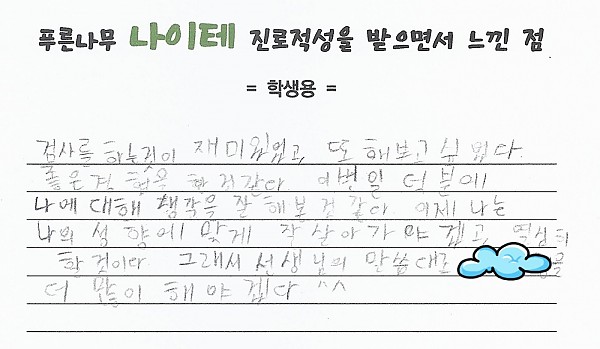 푸른나무 나이테 진로적성을 받으면서 느낀 점
= 학생용 =
검사를 하는것이 재미있었고, 또 해보고 싶었다.
좋은 경험을 한 것 같다. 이번 일 덕분에
나에 대해 생각을 잘 해본 것 같다. 이제 나는
나의 성향에 맞게 잘 살아가야 겠고 열심히
할 것이다. 그래서 선생님의 말씀대로 을
더 많이 해야 겠다 ^^